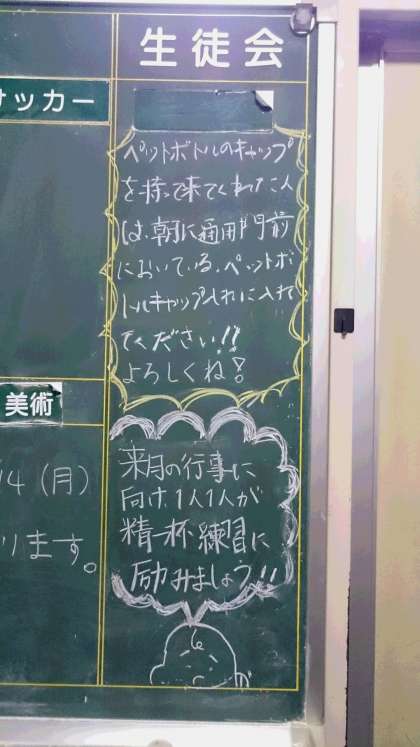 生徒会
サッカー
ペットボトルのキャップ
を持って来てくれた人
は、朝に通用門前
においている、ペットボ
トルキャップ入れに入れ
てください!!
よろしくね!
美術
14(月)
ります。
来月の行事に
向け、1人1人が
精一杯練習に
励みましょう!!